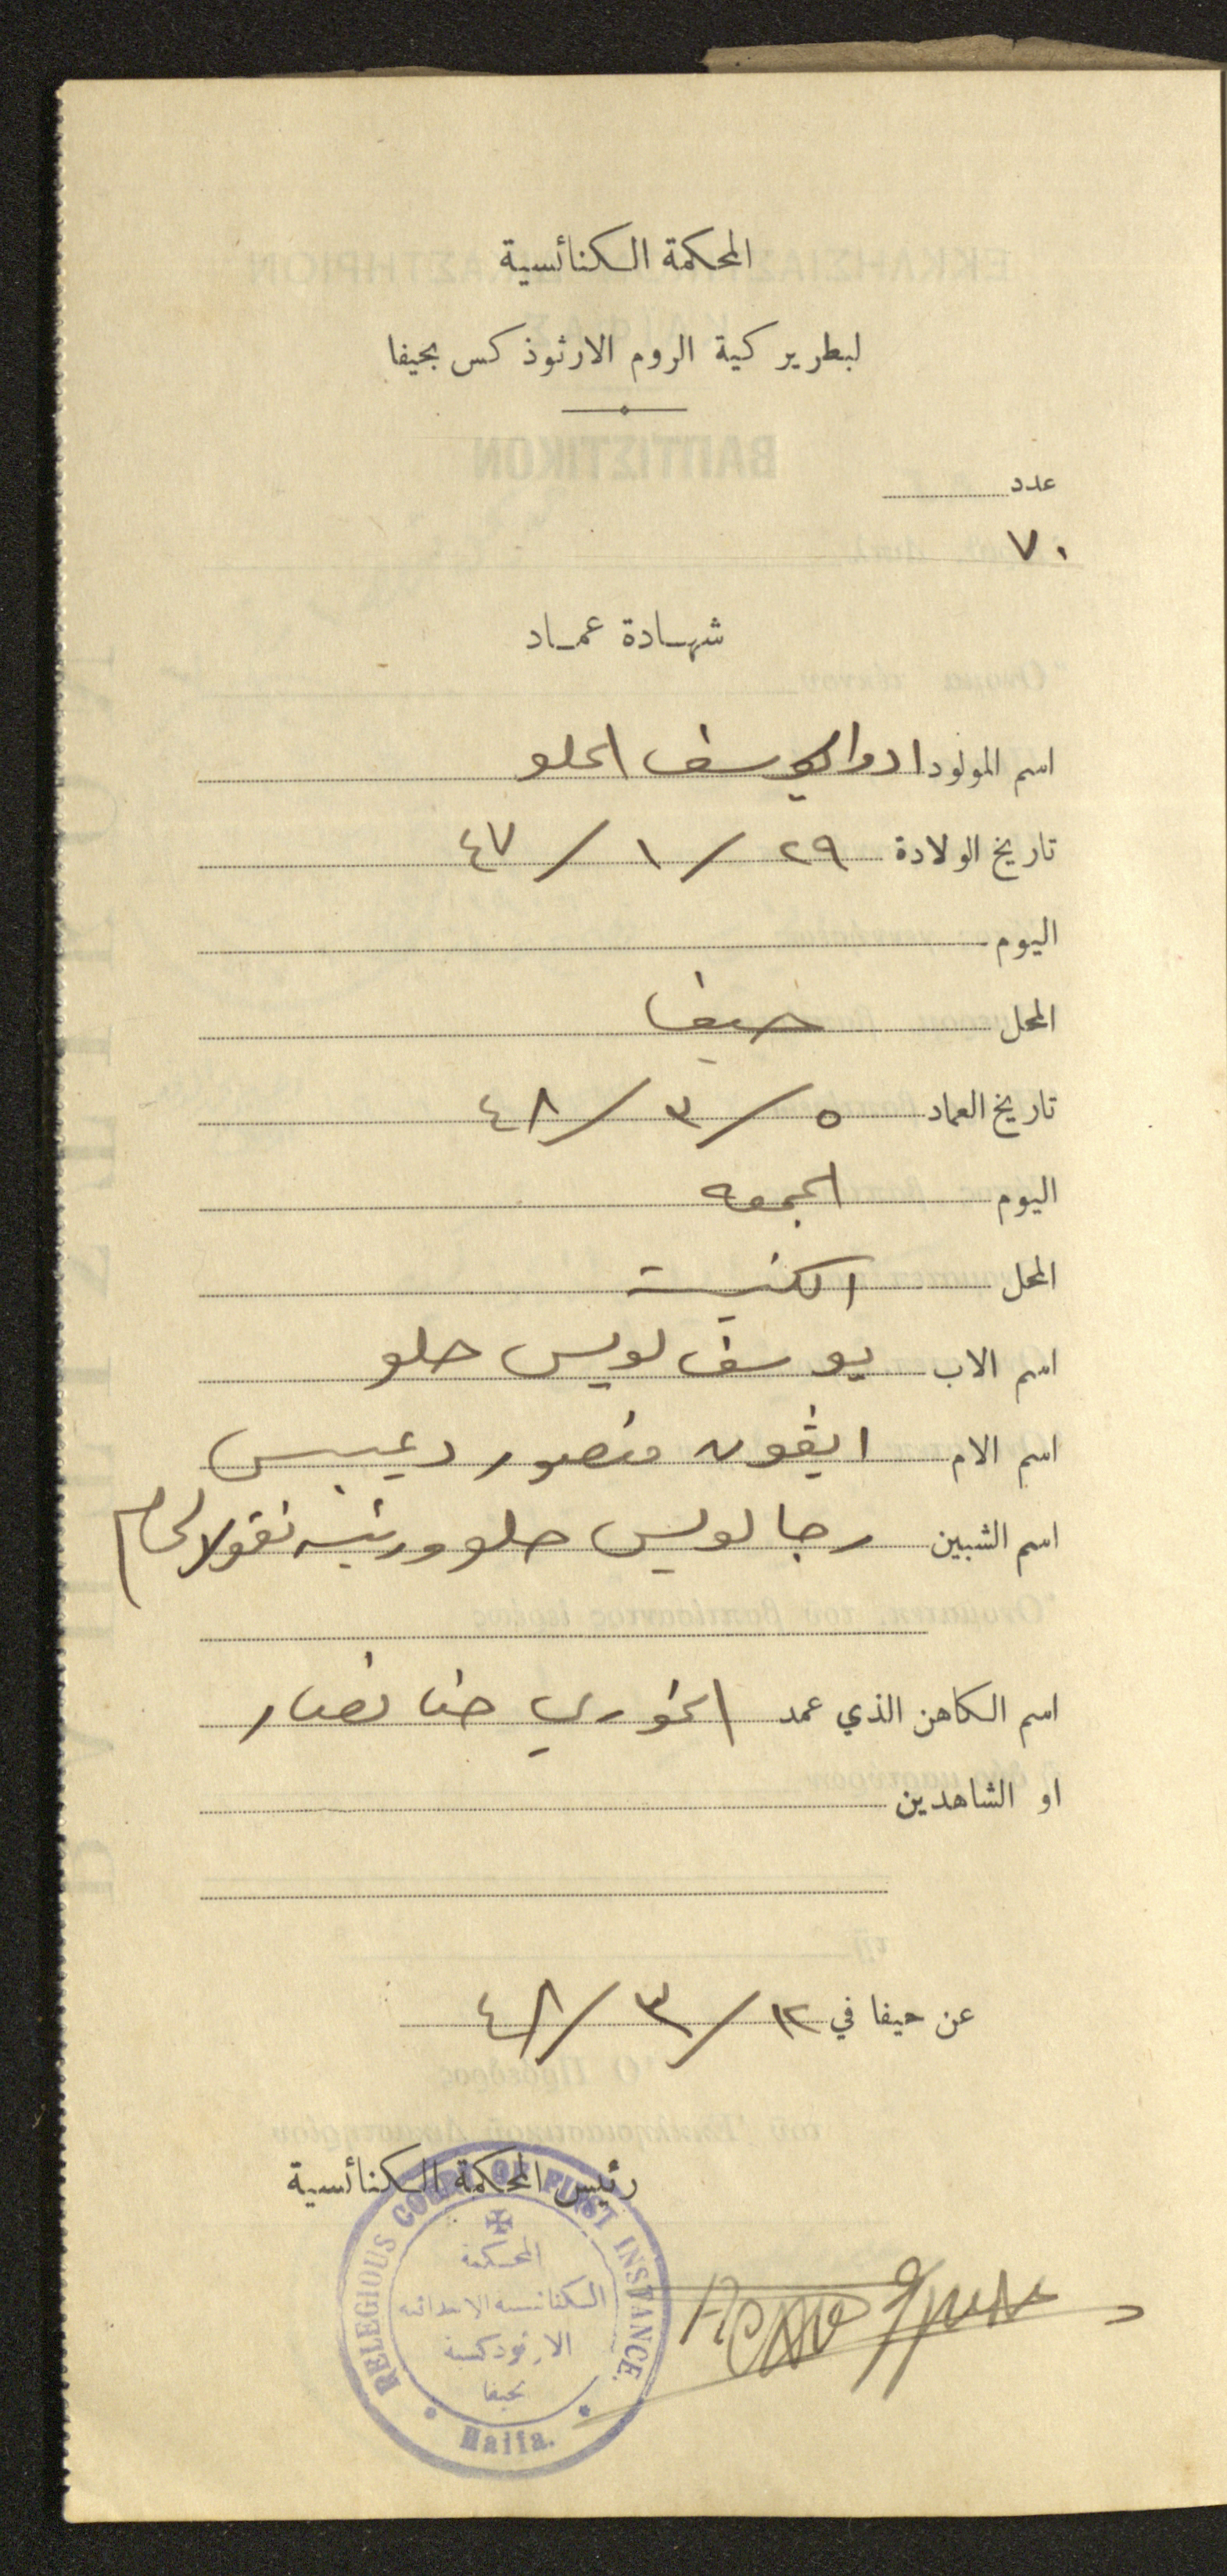 المحكمة الكنائسية
لبطريركية الروم الارثوذكس بحيفا
عدد
٧٠
شهادة عماد
اسم المولود ادوار يوسف الحلو
تاريخ الولادة ٢٩ / ١ / ٤٧
اليوم
المحل حيفا
تاريخ العماد ٥ / ٣ / ٤٨
اليوم الجمعه
المحل الكنيسة
اسم الاب يوسف لويس حلو
اسم الام ايڤون منصور دعيبس
اسم الشبين رجا لويس حلو ورينه نقولا لحام
اسم الكاهن الذي عمد الخوري حنا نصار
او الشاهدين
عن حيفا في ١٢ / ٣ / ٤٨
رئيس المحكمة الكنائسية
RELEGIOUS COURT OF FIRST INSTANCE.
المحكمة
الكنائسية الابتدائية
الارثوذكسية
بحيفا
Haifa.